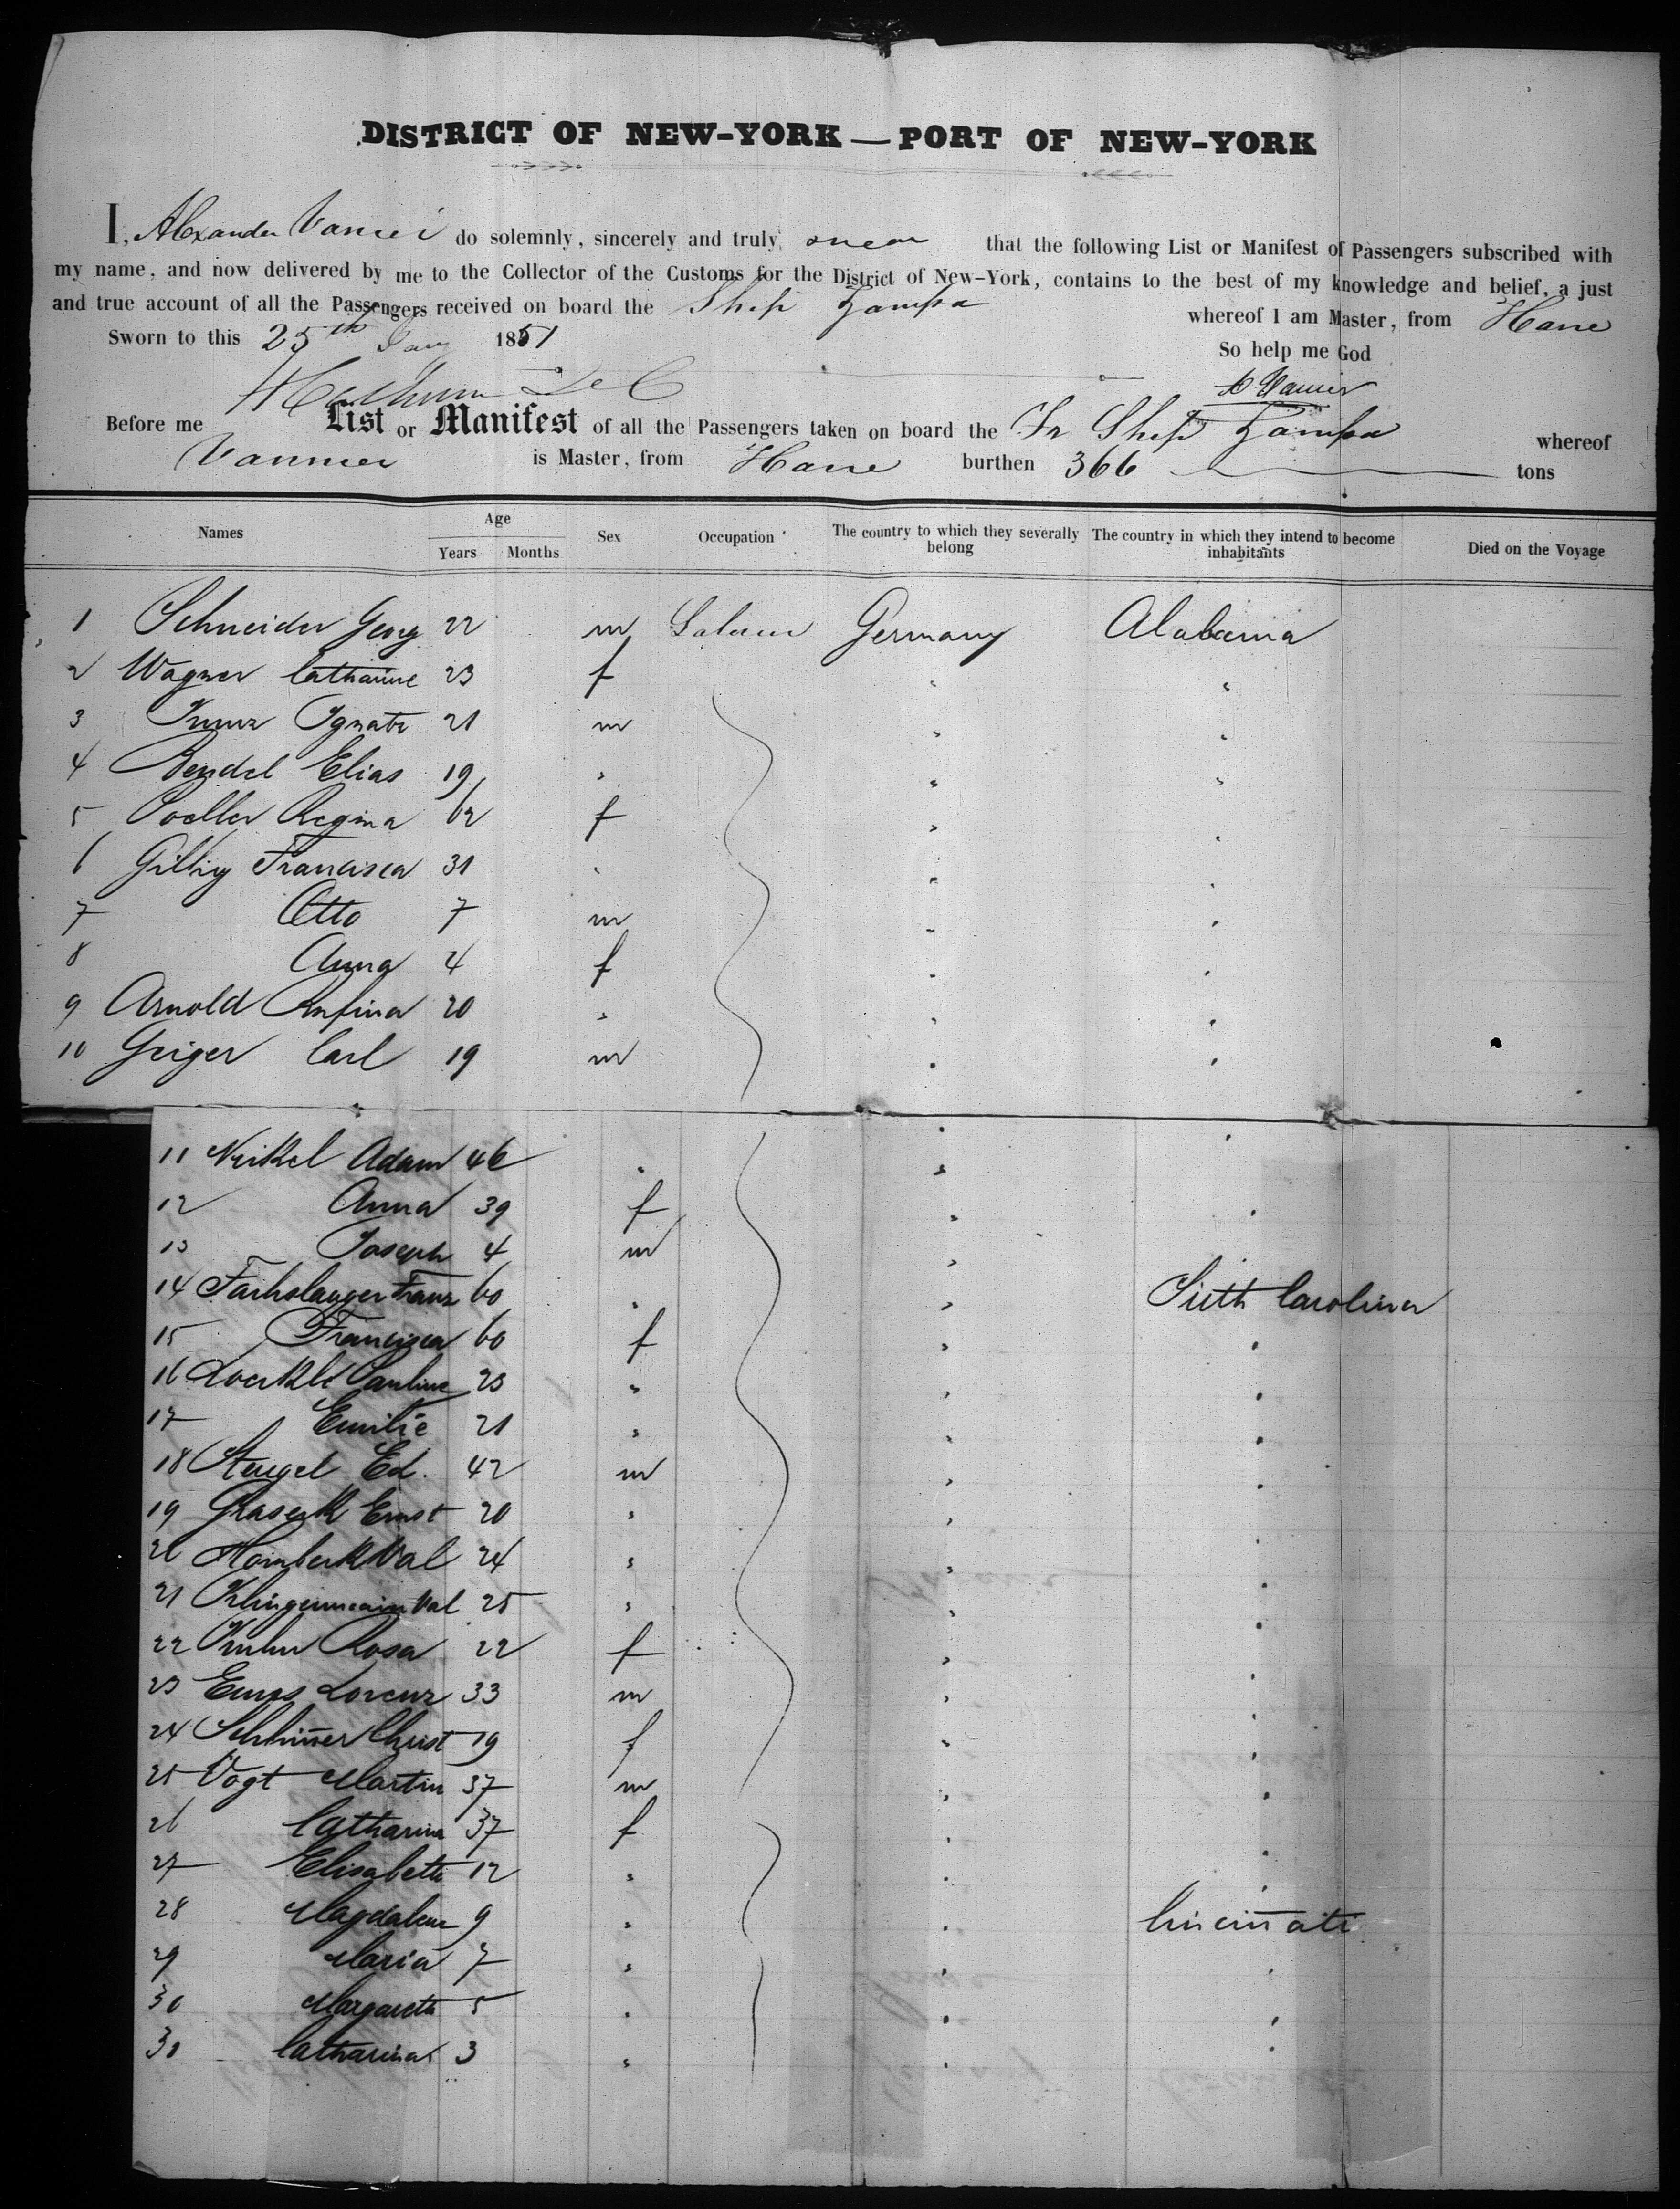 DISTRICT OF NEW-YORK — PORT OF NEW-YORK
I, Alexander do solemnly, sincerely and truly swear that the following List or Manifest of Passengers subscribed with
my name, and now delivered by me to the Collector of the Customs for the District of New-York, contains to the best of my knowledge and belief, a just
and true account of all the Passengers received on board the Ship Zampa whereof I am Master, from Havre
Sworn to this 25th Jany 1851
So help me God
Before me List or Manifest of all the Passengers taken on board the Fr Ship Zampa whereof
Vannier is Master, from Havre burthen 366 tons
Names Age Years Months Sex Occupation The country to which they severally belong The country in which they intend to become inhabitants Died on the Voyage
1 Schneider Georg 22 m Germany Alabama
2 Wagner Catharine 23 f "
3 Ignatz 21 m "
4 Bendel Elias 19 "
5 Regina 62 f "
6 Francisca 31 "
7 Otto 7 m "
8 Anna 4 f "
9 Arnold Rufina 20 "
10 Geiger Carl 19 m "
11 Neikel Adam 46 "
12 Anna 39 f "
13 Joseph 4 m "
14 Franz 60 " Carolina
15 Francisca 60 f "
16 Pauline 23 "
17 Emilie 21 "
18 Stengel Ed. 42 m "
19 Ernst 20 "
20 Val 24 "
21 Klingenmeier Val 25 "
22 Kuhn Rosa 22 f "
23 Lorenz 33 m "
24 Christ 19 f "
25 Vogt Martin 37 m "
26 Catharina 37 f "
27 Elisabeth 12 "
28 Magdalena 9 " Cincinnati
29 Maria 7 "
30 Margareth 5 "
30 Catharina 3 "